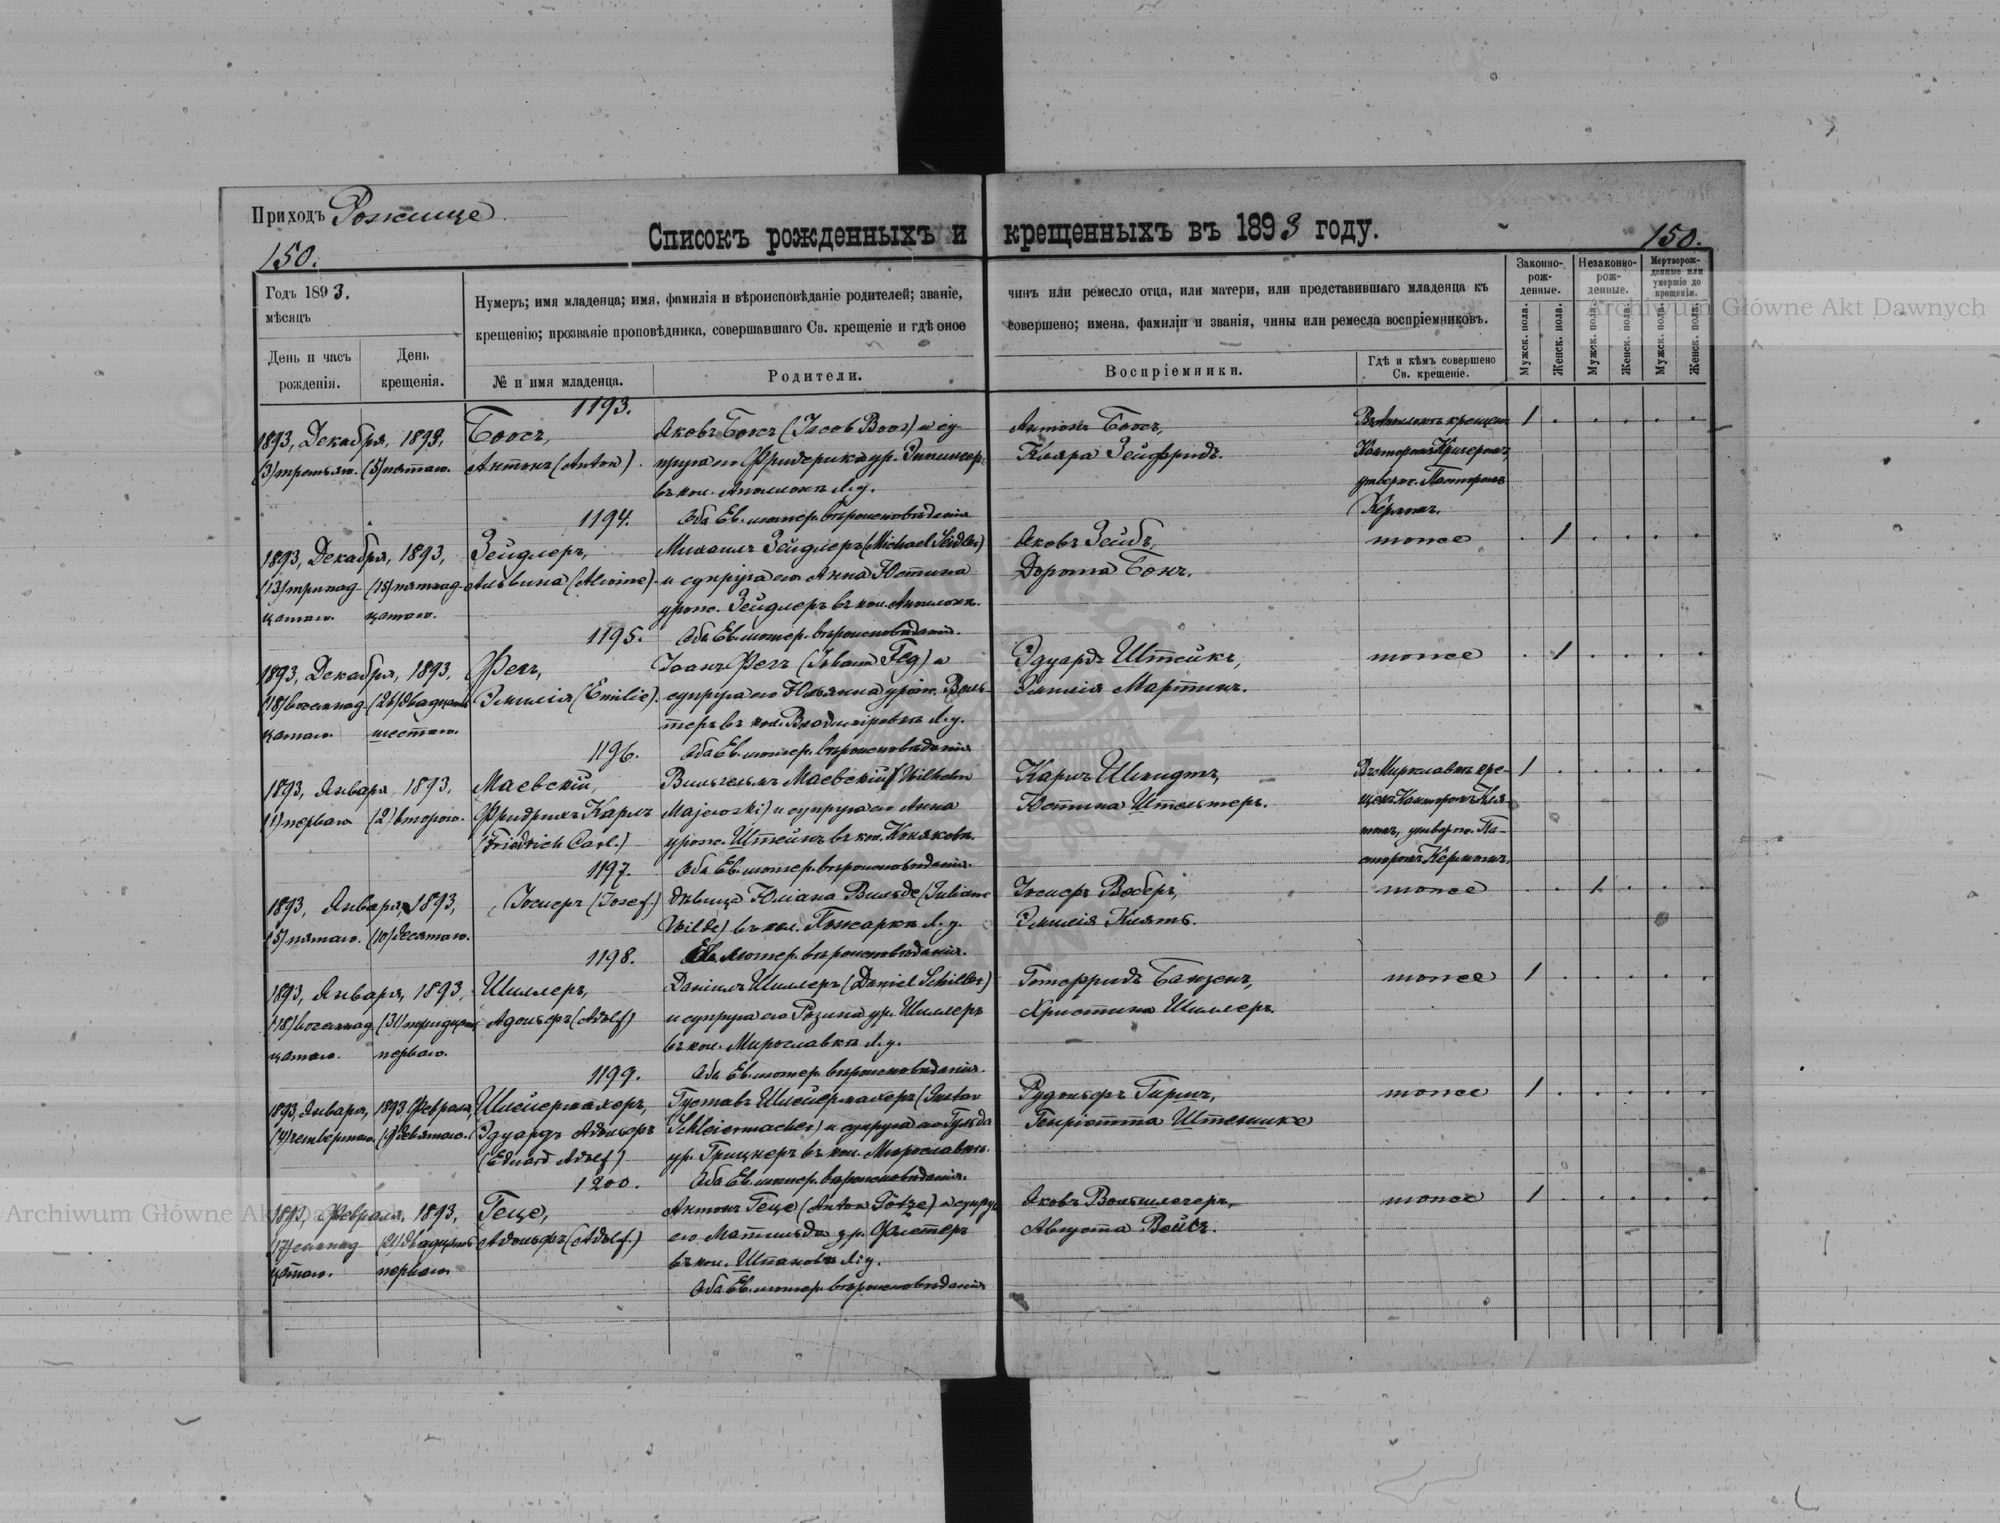 Приходъ Рожище
150.
Списокъ рожденныхъ и крещенныхъ въ 1893 году.
150.
Годъ 1893.
мѣсяцъ
День и часъ рожденія.
День крещенія.
Нумеръ; имя младенца; имя, фамилія и вѣроисповѣданіе родителей; званіе, чинъ или ремесло отца, или матери, или представившаго младенца къ
крещенію; прозваніе проповѣдника, совершавшаго Св. крещеніе и гдѣ оное совершено; имена, фамиліи и званія, чины или ремесла воспріемниковъ.
№ и имя младенца.
Родители.
Воспріемники.
Гдѣ и кѣмъ совершено Св. крещеніе.
Законно-рож-денные.
Незаконно-рож-денные.
Мертворож-денные или умершіе до крещенія.
Мужск. пола.
Женск. пола.
Мужск. пола.
Женск. пола.
Мужск. пола.
Женск. пола.
1193.
1893, Декабря, 1893, Боосъ, Яковъ Боосъ (Jacob Boos) и су- Антонъ Боосъ, 1
(3) третьяго. (5) пятаго. Антонъ (Anton). пруга его Фридерика ур. Клара Зейфридъ. Канторомъ
въ кол. Л. у. утвержд. Пасторомъ
1194. Оба Ев. лютер. вѣроисповѣданія Керномъ.
1893, Декабря, 1893, Зейдлеръ, Михаилъ Зейдлеръ (Michael Seidler) Яковъ Зейбъ, тоже 1
(13) тринад- (15) пятнад- Альвина (Alwine). и супруга его Анна Юстина Дорота Бокъ.
цатаго. цатаго. урож. Зейдлеръ въ кол.
1195. Оба Ев. лютер. вѣроисповѣданія.
1893, Декабря, 1893, Фегъ, Іоанъ Фегъ (Johann Feg) и Эдуардъ Штейкъ, тоже 1
(18) восемнад- (26) двадцать Эмилія (Emilie). супруга его Юльянна урож. Валь- Эмилія Мартинъ.
цатаго. шестаго. теръ въ кол. Владиміровкѣ Л. у.
1196. Оба Ев. лютер. вѣроисповѣданія
1893, Января, 1893, Маевскій, Вильгельмъ Маевскій (Wilhelm Карлъ Шмидтъ, Въ Мирославкѣ кре- 1
(1) перваго (2) втораго. Фридрихъ Карлъ Majewski) и супруга его Анна Юстина Штельтеръ. щенъ Канторомъ
(Friedrich Carl.) урож. Штейнъ въ кол. утвержд. Па-
1197. Оба Ев. лютер. вѣроисповѣданія. сторомъ Керномъ
1893, Января, 1893, Іосифъ (Josef.) дѣвица Юліана Вильде (Juliane Іосифъ Веберъ, тоже 1
(5) пятаго. (10) десятаго. Wilde) въ кол. Пожаркѣ Л. у. Эмилія Княтъ.
1198. Ев. лютер. вѣроисповѣданія.
1893, Января, 1893, Шиллеръ, Даніилъ Шиллеръ (Daniel Schiller) Готфридъ Банзенъ, тоже 1
(18) восемнад- (31) тридцать Адольфъ (Adolf) и супруга его Розина ур. Шиллеръ Христина Шиллеръ.
цатаго. перваго. въ кол. Мирославкѣ Л. у.
1199. Оба Ев. лютер. вѣроисповѣданія.
1893, Января, 1893, Февраля, Шлейермахеръ, Густавъ Шлейермахеръ (Gustav Рудольфъ Гиршъ, тоже 1
(4) четвертаго. (9) девятаго. Эдуардъ Адольфъ Schleiermacher) и супруга его Гульда Генріетта Штельшке
(Eduard Adolf) ур. Грицнеръ въ кол. Мирославкѣ.
1200. Оба Ев. лютер. вѣроисповѣданія.
1893, Февраля, 1893, Геце, Антонъ Геце (Anton Götze) и супруга Яковъ тоже 1
(17) семнад- (21) двадцать Адольфъ (Adolf.) его Матильда ур. Ферстеръ Августа Вейсъ.
цатаго. перваго. въ кол. Л. у.
Оба Ев. лютер. вѣроисповѣданія
Archiwum Główne Akt Dawnych
Archiwum Główne Akt Dawnych